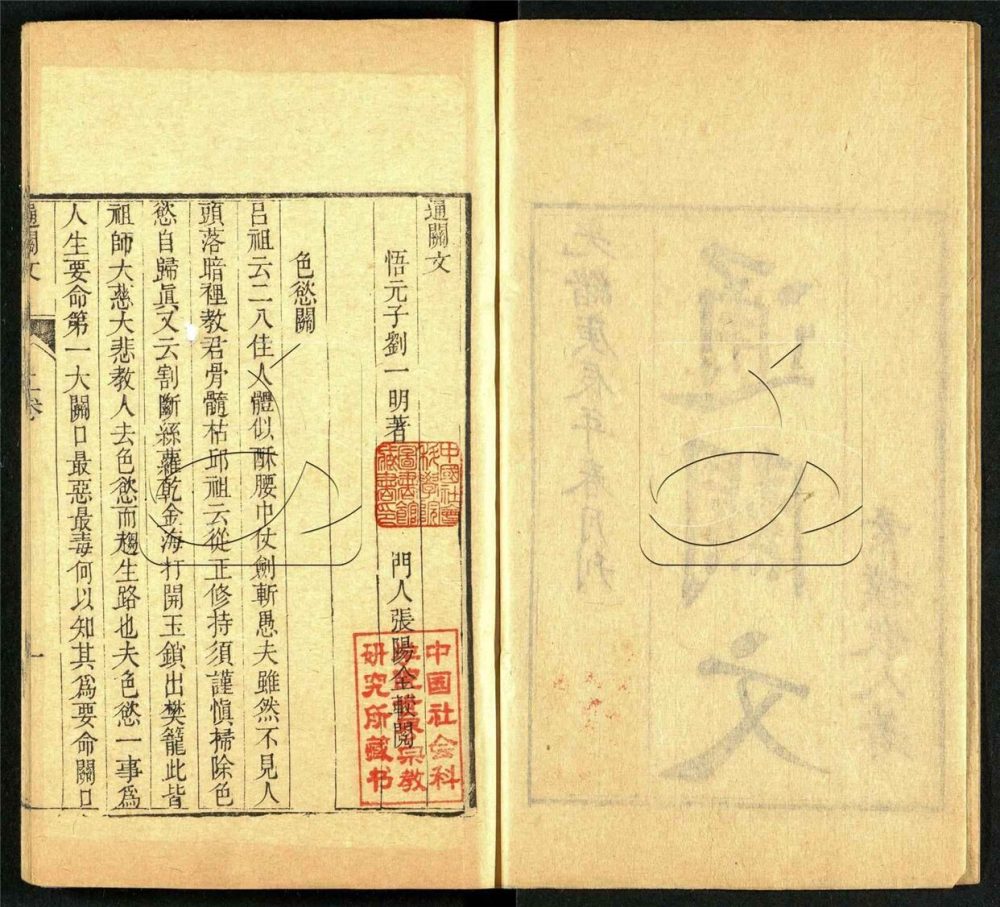 通關文
悟元子劉一明著　門人張陽全較閱
色慾關
呂祖云二八佳人體似酥腰巾仗劍斬愚夫雖然不見人
頭落暗裡教君骨髓枯邱祖云從正修持須謹慎掃除色
慾自歸眞又云割斷絲蘿乾金海打開玉鎖出樊籠此皆
祖師大慈大悲教人去色慾而趨生路也夫色慾一事爲
人生要命第一大關口最惡最毒何以知其爲要命關口
通關文　上卷　一
中國社會
科學院
圖書館
藏書印
中国社会科
宗教
研究所藏书